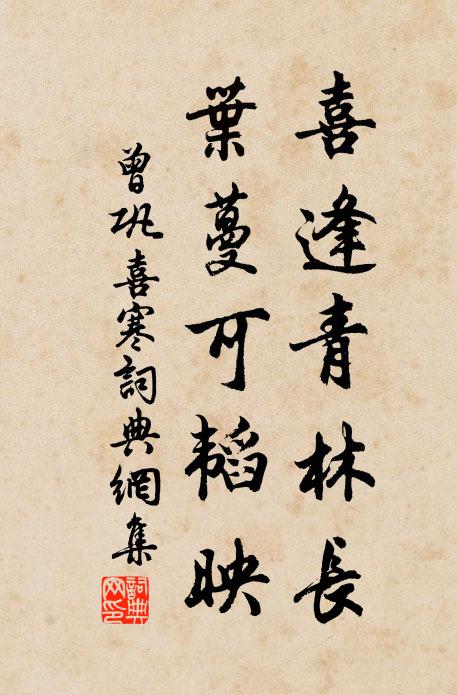 喜逢青林長
葉蔓可韜映
曾巩喜寒詞典網集
詞典
网印